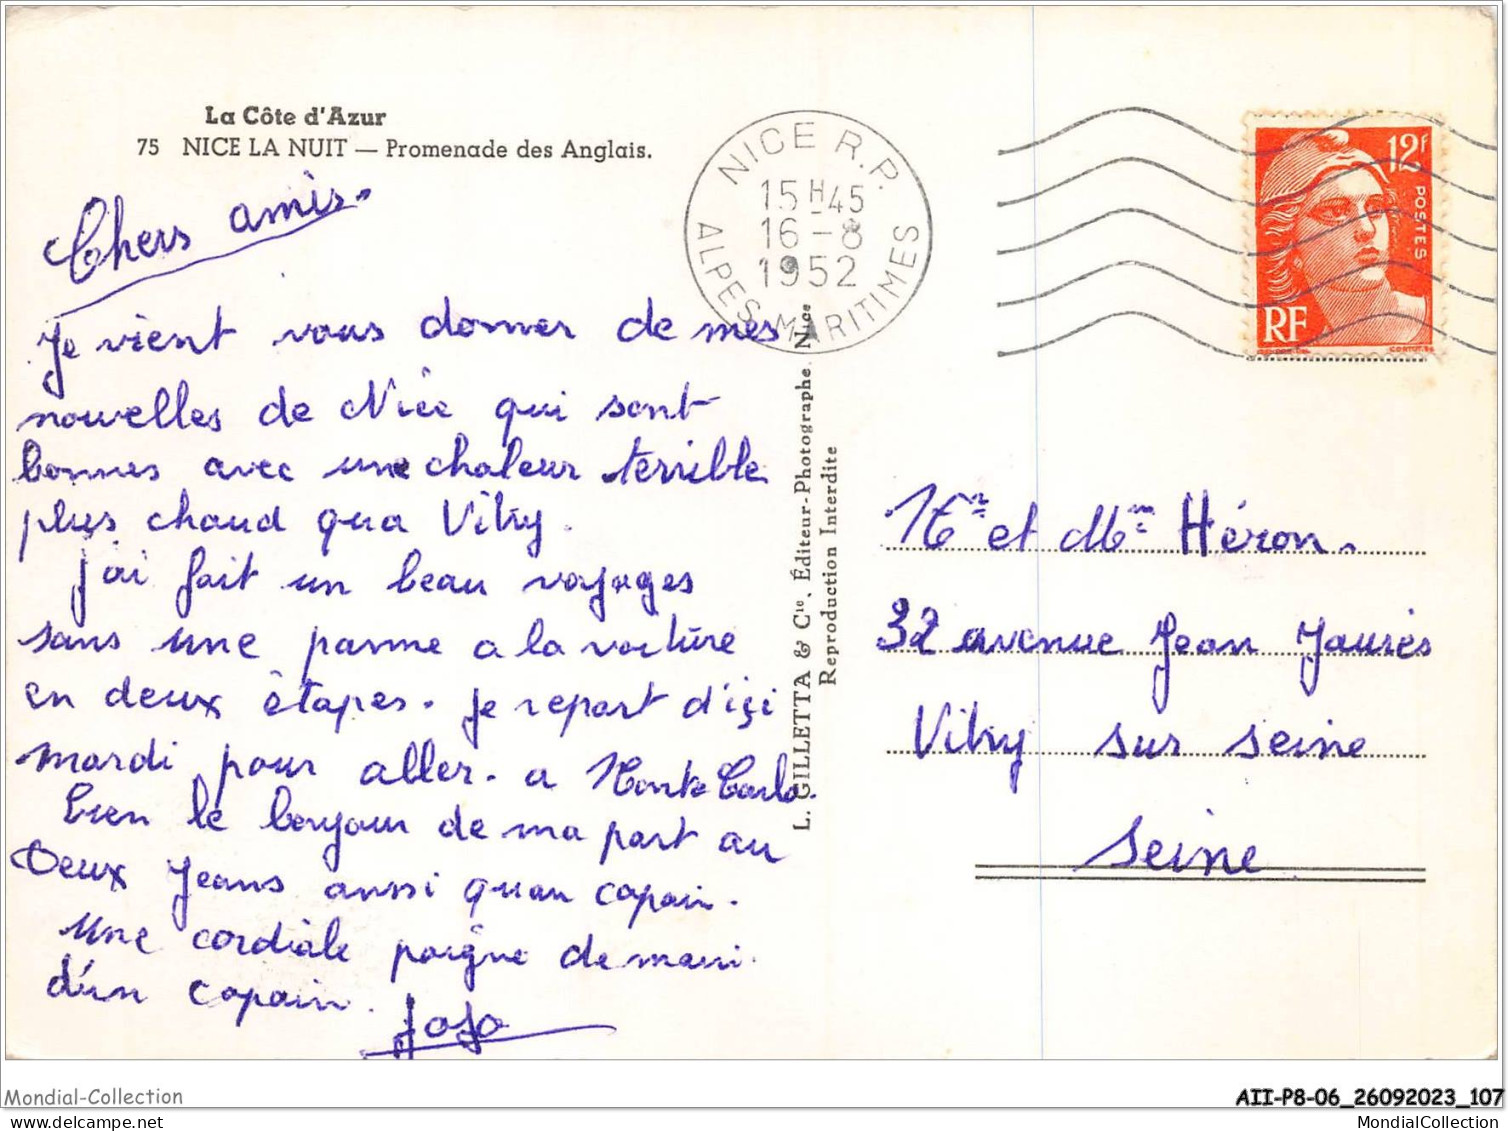 La Côte d'Azur
75 NICE LA NUIT — Promenade des Anglais.
NICE R.P.
15 H 45
16 - 8
1952
ALPES-MARITIMES
12F
POSTES
RF
Chers amis.
Je vient vous donner de mes
nouvelles de Nice qui sont
bonnes avec une chaleur terrible
plus chaud qua Vitry.
j'ai fait un beau voyages
sans une panne a la voiture
en deux étapes. Je repart d'içi
mardi pour aller. a Monte Carlo.
bien le bonjour de ma part au
Deux Jeans aussi quau copain.
Une cordiale poigne de main
d'un copain.
Jojo
L. GILLETTA & Cie, Éditeur-Photographe. Nice
Reproduction Interdite
Mr et Mme Héron.
32 avenue Jean Jaurès
Vitry sur seine
Seine
Mondial-Collection
https://www.delcampe.net/fr/collections/store/Mondial-Collection
AII-P8-06_26092023_107
MondialCollection